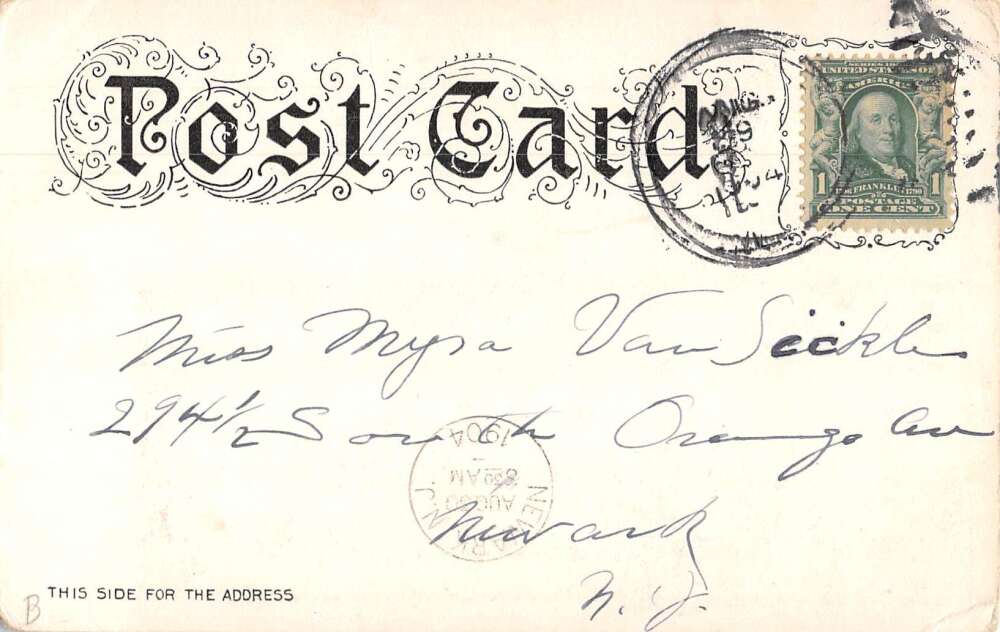 Post Card
SERIES 1902
UNITED STATES OF
AMERICA
1 FRANKLIN 1790 1
POSTAGE
ONE CENT
AUG
Miss Myra Van Sickle
294 1/2 South Orange Av
Newark
N. J.
NEWARK N.J.
AUG 30
8 30 AM
190
THIS SIDE FOR THE ADDRESS
B